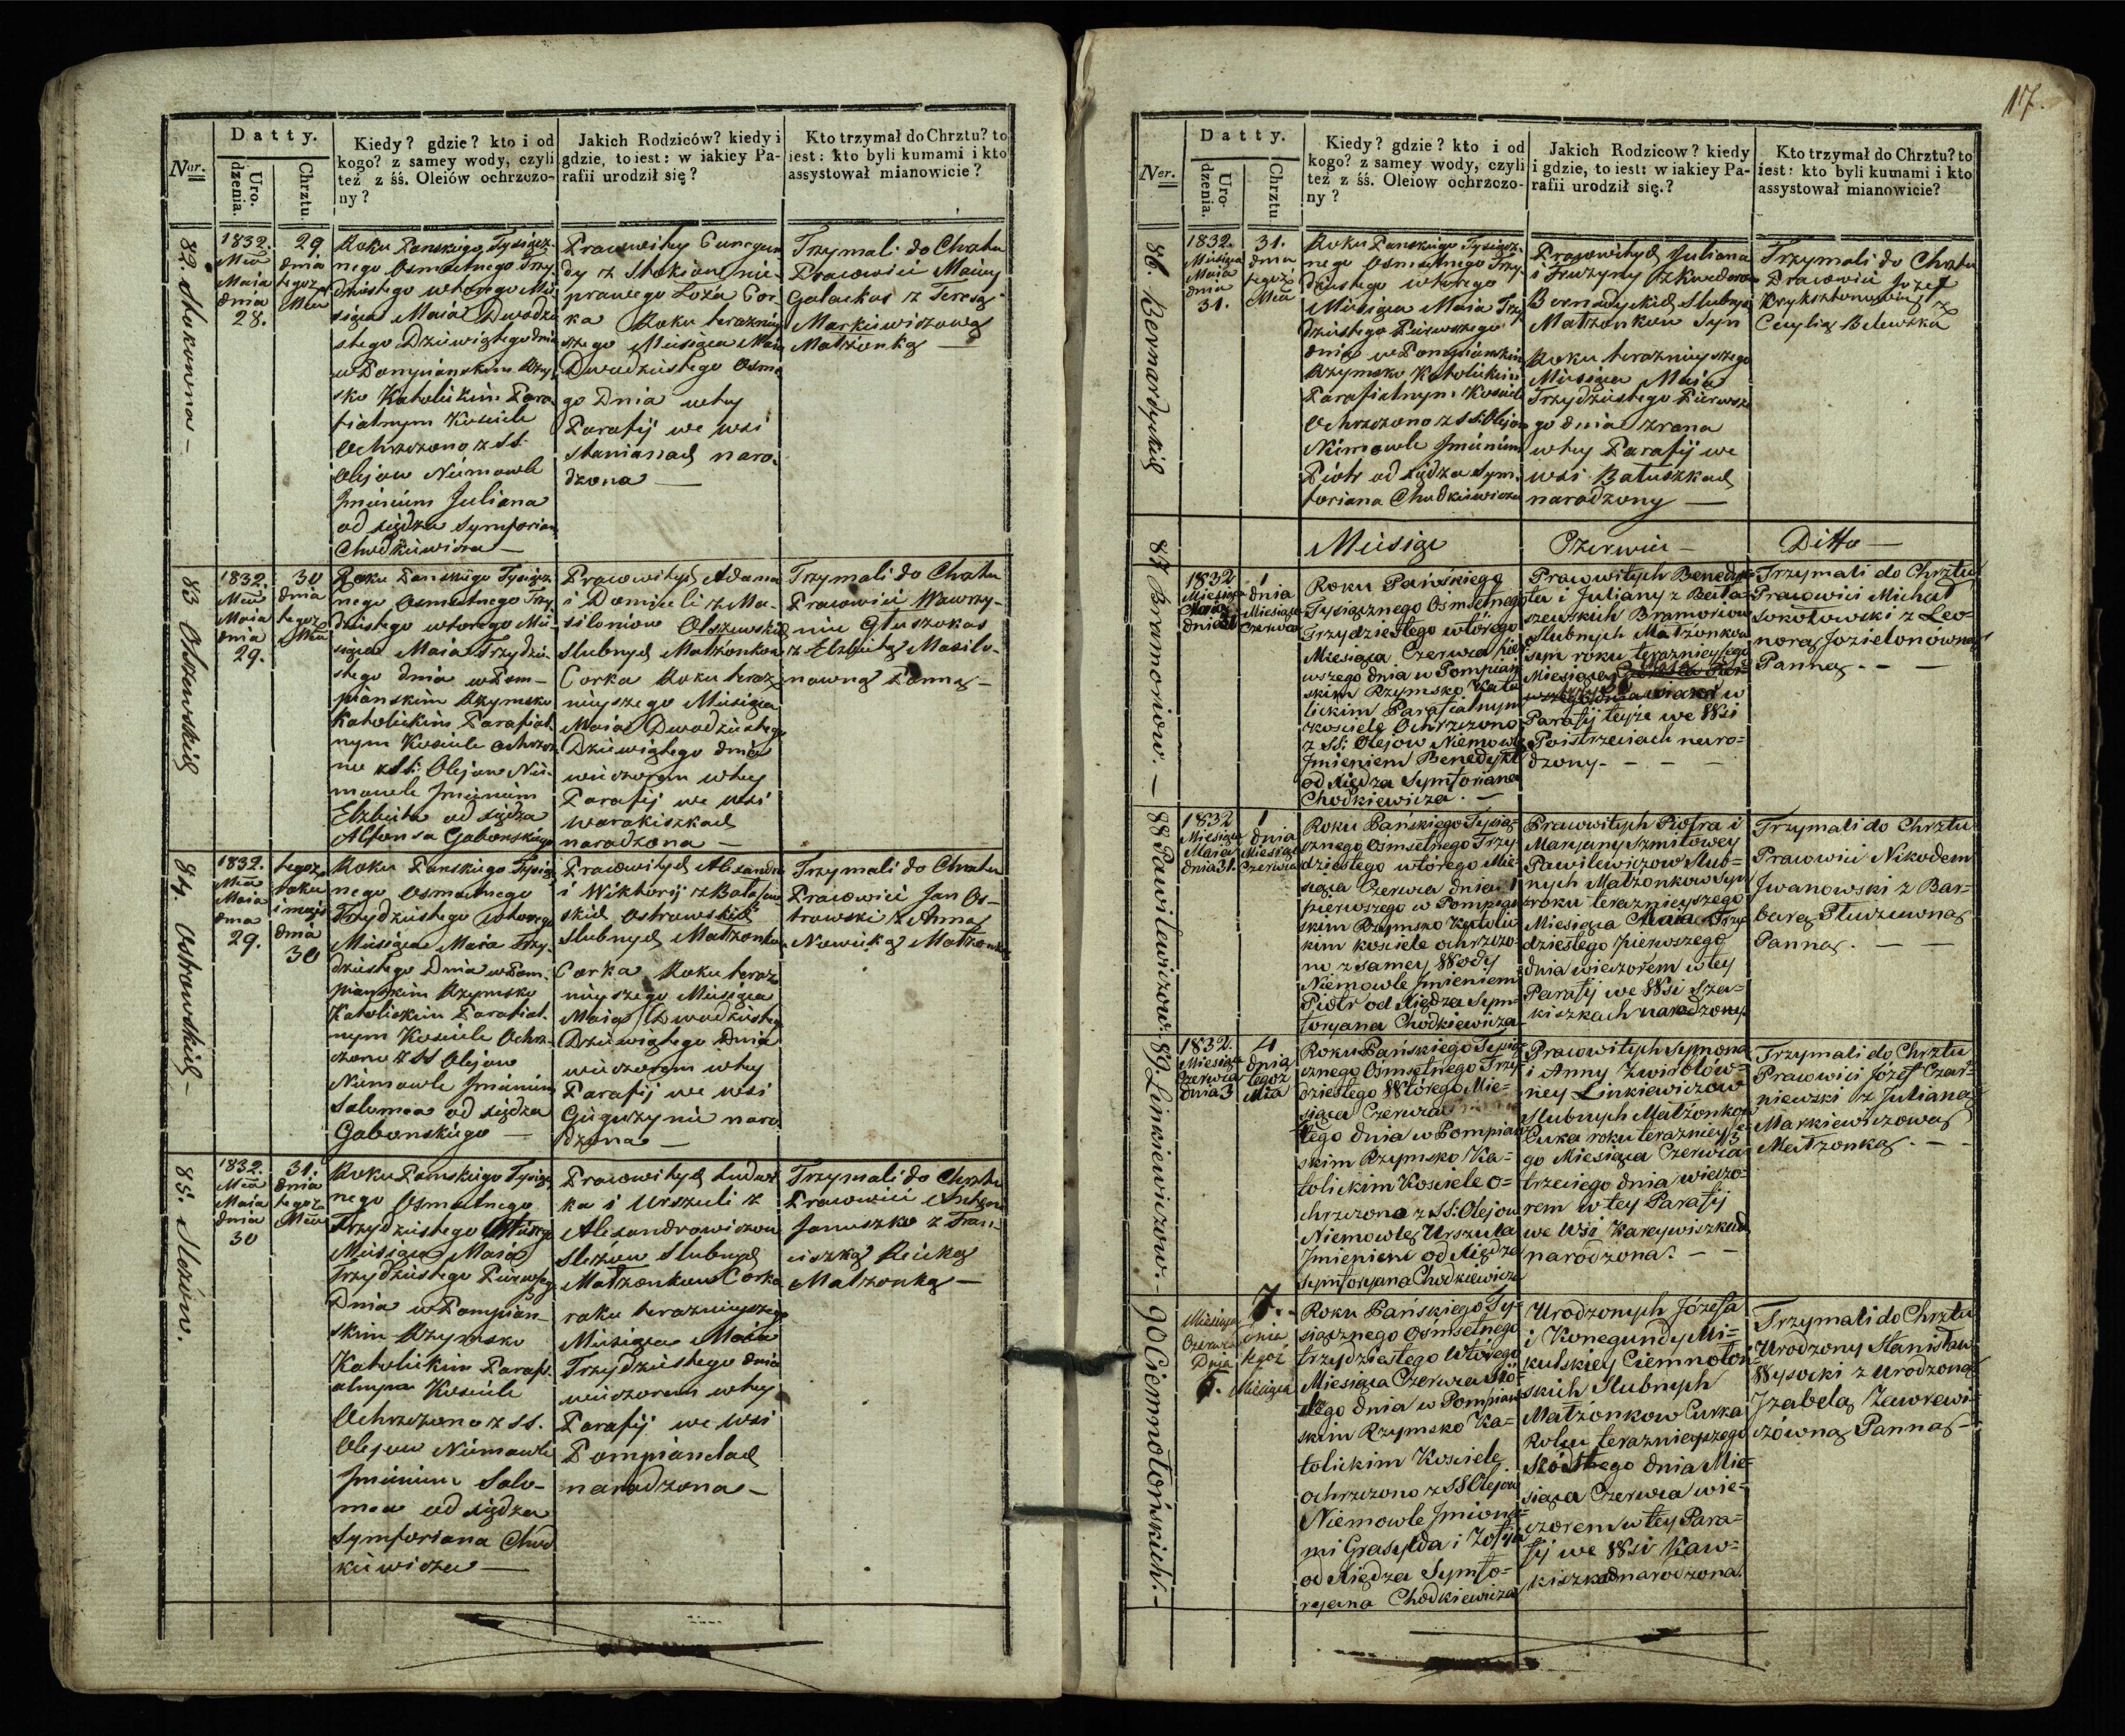 Datty.
Ner.
Uro-
dzenia.
Chrztu.
Kiedy? gdzie? kto i od
kogo? z samey wody, czyli
też z śś. Oleiów ochrzczo-
ny?
Jakich Rodziców? kiedy i
gdzie, to iest: w iakiey Pa-
rafii urodził się?
Kto trzymał do Chrztu? to
iest: kto byli kumami i kto
assystował mianowicie?
82. Stokowna —
1832.
Mca
Maia
dnia
28.
29
dnia
tegoż
Mca
Roku Panskiego Tysiącz-
nego Osmsetnego Trzy-
dziestego wtorego Mie-
siąca Maia Dwadzie
stego Dziewiątego dnia
w Pompianskim Rzym
sko Katolickim Para-
fialnym Kosciele
Ochrzczono z SS.
Olejow Niemowle
Jmieniem Juliana
od Xiędza Symforiana
Chodkiewicza —
Pracowitey Cunegun
dy z Stokow nie-
prawego Łoża Cor-
ka Roku teraznie
szego Miesiąca Maia
Dwadziestego Osme
go Dnia w tey
Parafij we wsi
Stanianach naro-
dzona —
Trzymali do Chrztu
Pracowici Maciey
Galackas z Teresą
Markiewiczową
Matżonką —
83 Olszewskich
1832.
Mca
Maia
dnia
29.
30
dnia
tegoż
Mca
Roku Panskiego Tysiącz
nego Osmsetnego Trzy
dziestego wtorego Mie-
siąca Maia Trzydzie-
stego dnia w Pom-
pianskim Rzymsko
Katolickim Parafial-
nym Kosciele ochrzczo-
no z SS. Olejow Nie-
mowle Jmieniem
Elzbieta od Xiędza
Alfonsa Gabonskiego
Pracowitych Adama
i Domiceli z Ma-
siloniow Olszewskich
Slubnych Matżonkow
Corka Roku teraz-
nieyszego Miesiąca
Maia Dwadziestego
Dziewiątego dnia
wieczorem w tey
Parafij we wsi
Warakiszkach
narodzona —
Trzymali do Chrztu
Pracowici Wawrzy-
niec Głuszokas
z Elzbietą Masilo-
nowną Panną —
84. Ostrowskich —
1832.
Mca
Maia
dnia
29.
tegoż
roku
i mca
dnia
30
Roku Panskiego Tysiącz
nego Osmsetnego
Trzydziestego Wtorego
Miesiąca Maia Trzy-
dziestego Dnia w Pom-
pianskim Rzymsko
Katolickim Parafial-
nym Kosciele Ochrz-
czono z SS Olejow
Niemowle Jmieniem
Salomea od Xiędza
Gabonskiego —
Pracowitych Alexandra
i Wiktorij z
Ostrowskich
Slubnych Matżonkow
Corka Roku teraz-
nieyszego Miesiąca
Maia Dwadziestego
Dziewiątego Dnia
wieczorem w tey
Parafij we wsi
Giguzynie naro
dzona —
Trzymali do Chrztu
Pracowici Jan Os-
trowski z Anną
Nowicką Matżonką
85. Slezów.
1832.
Mca
Maia
dnia
30
31.
dnia
tegoż
Mca
Roku Panskiego Tysiącz
nego Osmsetnego
Trzydziestego Wtorego
Miesiąca Maia
Trzydziestego Pierwszego
Dnia w Pompian-
skim Rzymsko
Katolickim Parafi-
alnym Kosciele
Ochrzczono z SS.
Olejow Niemowle
Jmieniem Salo-
mea od Xiędza
Symforiana Chod
kiewicza —
Pracowitych Ludwi-
ka i Urszuli z
Alexandrowiczow
Slezow Slubnych
Matżonkow Corka
roku teraznieyszego
Miesiąca Maia
Trzydziestego dnia
wieczorem w tey
Parafij we wsi
Pompianelach
narodzona —
Trzymali do Chrztu
Pracowici Antoni
Januszko z Fran-
ciszką Reicką
Matżonką —
17.
Datty.
Ner.
Uro-
dzenia.
Chrztu
Kiedy? gdzie? kto i od
kogo? z samey wody, czyli
też z śś. Oleiow ochrzczo-
ny?
Jakich Rodzicow? kiedy
i gdzie, to iest: w iakiey Pa-
rafii urodził się.?
Kto trzymał do Chrztu? to
iest: kto byli kumami i kto
assystował mianowicie?
86. Bernardyckich
1832.
Miesiąca
Maia
dnia
31.
31.
dnia
tegoż
Mca
Roku Panskiego Tysiącz-
nego Osmsetnego Trzy-
dziestego wtorego
Miesiąca Maia Trzy
dziestego Pierwszego
dnia w Pompianskim
Rzymsko Katolickim
Parafialnym Kosciele
Ochrzczono z SS. Olejow
Niemowle Jmieniem
Piotr od Xiędza Sym-
foriana Chodkiewicza
Pracowitych Juliana
i Fruzyny z
Bernadyckich Slubnych
Matżonkow Syn
Roku teraznieyszego
Miesiąca Maia
Trzydziestego Pierwsze
go dnia z rana
w tey Parafij we
wsi Batuszkach
narodzony —
Trzymali do Chrztu
Pracowici Jozef
z
Cecylią Belewską
Miesiąc Czerwiec — Ditto —
87 Bramoniow. —
1832
Miesiąca
Maia
dnia 31
1
dnia
Miesiąca
Czerwca
Roku Pańskiego
Tysiącznego Osmsetnego
Trzydziestego wtórego
Miesiąca Czerwca pier
wszego dnia w Pompiań
skim Rzymsko Kato
lickim Parafialnym
Kosciele Ochrzczono
z SS: Olejow Niemowle
Jmieniem Benedykt
od Xiędza Symforiana
Chodkiewicza. —
Pracowitych Benedyk-
ta i Juliany z Beta-
szewskich Bramoniow
Slubnych Matżonkow
syn roku teraznieyszego
Miesiąca Maia
w
Parafij teyże we Wsi
Poistrzeciach naro-
dzony. — — —
Trzymali do Chrztu
Pracowici Michał
Sokołowski z Leo-
norą Jozielonówną
Panną. — —
88 Pawilewiczow.
1832
Miesiąca
Maia
dnia 31.
1
dnia
Miesiąca
Czerwca
Roku Pańskiego Tysią-
cznego Osmsetnego Trzy
dziestego wtórego Mie-
siąca Czerwca dnia 1
pierwszego w Pompian
skim Rzymsko Katolic
kim kosciele ochrzczo-
no z samey Wody
Niemowle Jmieniem
Piotr od Xiędza Sym-
foryana Chodkiewicza
Pracowitych Piotra i
Maryany Szmitowey
Pawilewiczow Slub-
nych Matżonkow Syn
roku teraznieyszego
Miesiąca Maia Trzy
dziestego pierwszego
dnia wieczorem w tey
Parafij we Wsi Sza-
kiszkach narodzony
Trzymali do Chrztu
Pracowici Nikodem
Jwanowski z Bar-
barą Pludziewną
Panną. — —
89. Linkiewiczow. —
1832.
Miesiąca
Czerwca
dnia 3
4
dnia
tegoż
Mca
Roku Pańskiego Tysią-
cznego Osmsetnego Trzy
dziestego Wtórego Mie-
siąca Czerwca
tego dnia w Pompian
skim Rzymsko Ka-
tolickim Kosciele o-
chrzczono z SS: Olejow
Niemowlę Urszula
Jmieniem od Xiędza
Symforyana Chodkiewicza
Pracowitych Symona
i Anny Zwirblów-
ney Linkiewiczow
Slubnych Matżonkow
Curka roku teraznieysze
go Miesiąca Czerwca 3
trzeciego dnia wieczo-
rem w tey Parafij
we Wsi Kareywiszkach
narodzona. — —
Trzymali do Chrztu
Pracowici Józef Czar-
niewski z Julianą
Markiewiczową
Matżonką. — —
90 Ciemnołońskich. —
Miesiąca
Czerwca
Dnia
6.
7.
dnia
tegoż
Miesiąca
Roku Pańskiego Ty-
siącznego Osmsetnego
trzydziestego Wtórego
Miesiąca Czerwca Siód-
mego dnia w Pompian
skim Rzymsko Ka-
tolickim Kosciele
ochrzczono z SS Olejow
Niemowle Jmiona-
mi Grasylda i Zofija
od Xiędza Symfo-
ryana Chodkiewicza
Urodzonych Józefa
i Konegundy Mi-
kulskiey Ciemnołoń-
skich Slubnych
Matżonkow Curka
Roku teraznieyszego
Szóstego dnia Mie-
siąca Czerwca wie-
czorem w tey Para-
fij we Wsi Kaw-
kiszkach narodzona.
Trzymali do Chrztu
Urodzony Stanisław
Wysocki z Urodzoną
Jzabelą Zaworewi-
czówną Panną —